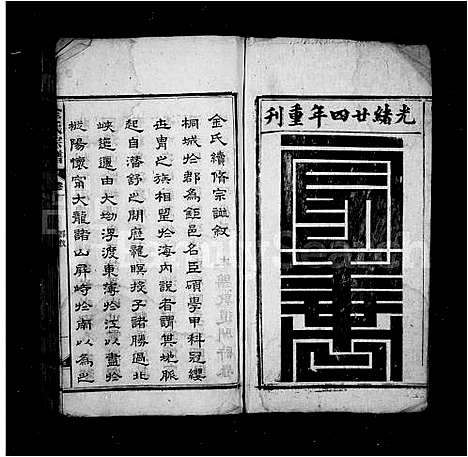 光緒廿四年重刊
金氏續脩宗譜敘
桐城於郡為鉅邑名臣碩學甲科冠纓
世冑之族相望於海內說者謂其地脈
起自潛舒之間歷龍瞑投子諸勝過北
峽迤邐由大坳浮渡東薄於江以盡於
樅陽懷甯大龍諸山屏峙於南以為邑